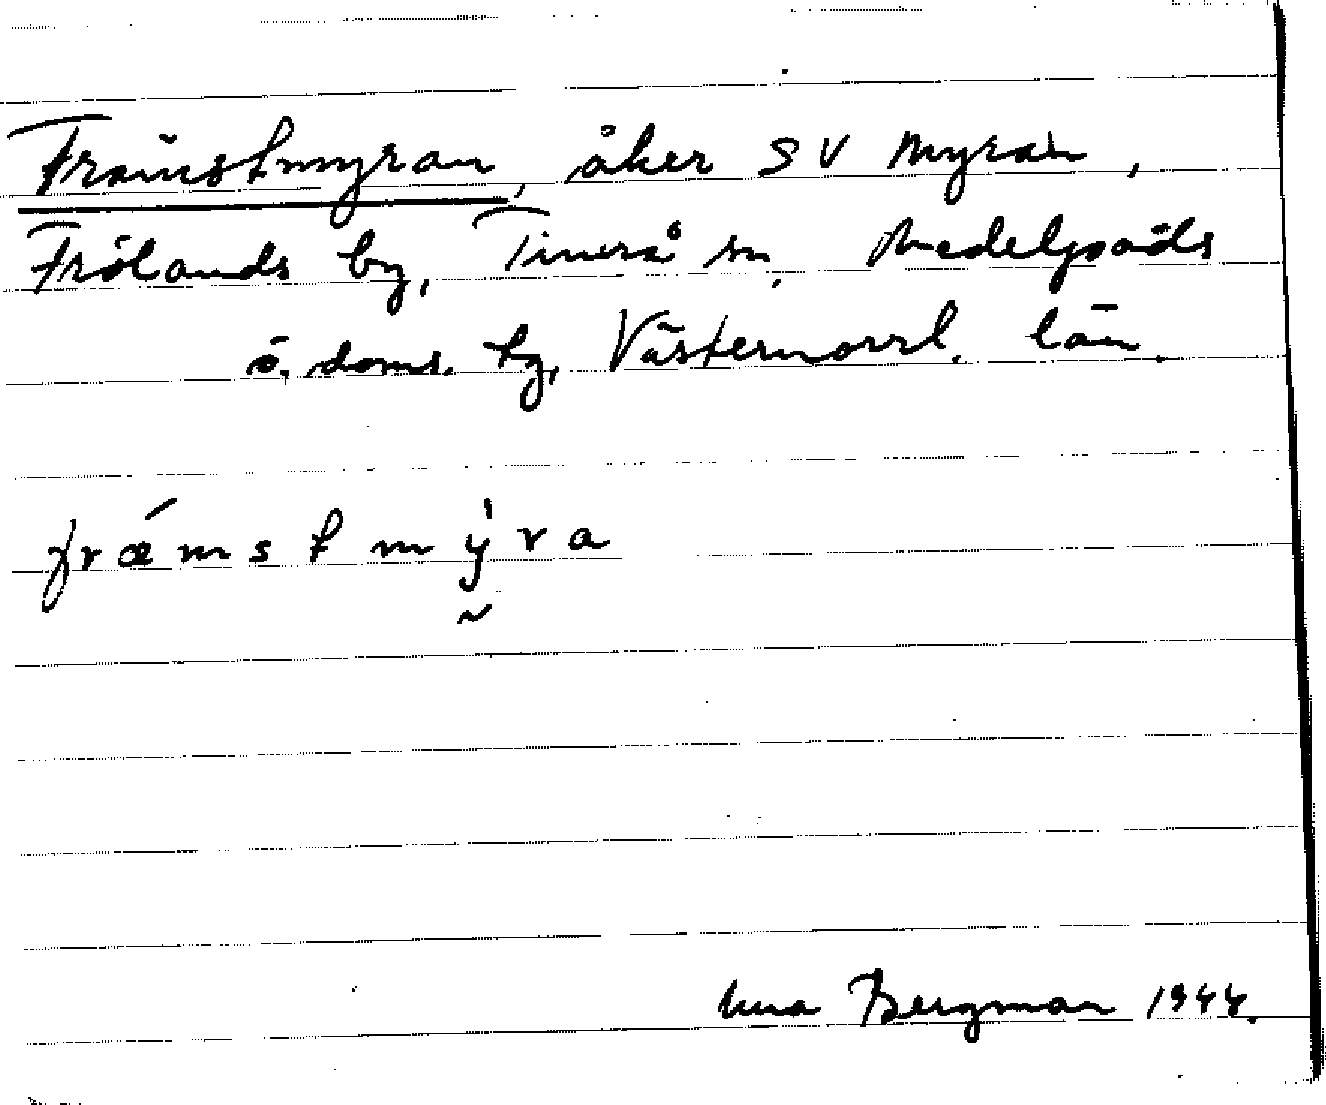 Främstmyran, åker SV Myran,
Frölands by, Timrå sn, Medelpads
ö. doms. tg, Västernorrl. län.
frǽmstmy̍ra
Bergman 1944.